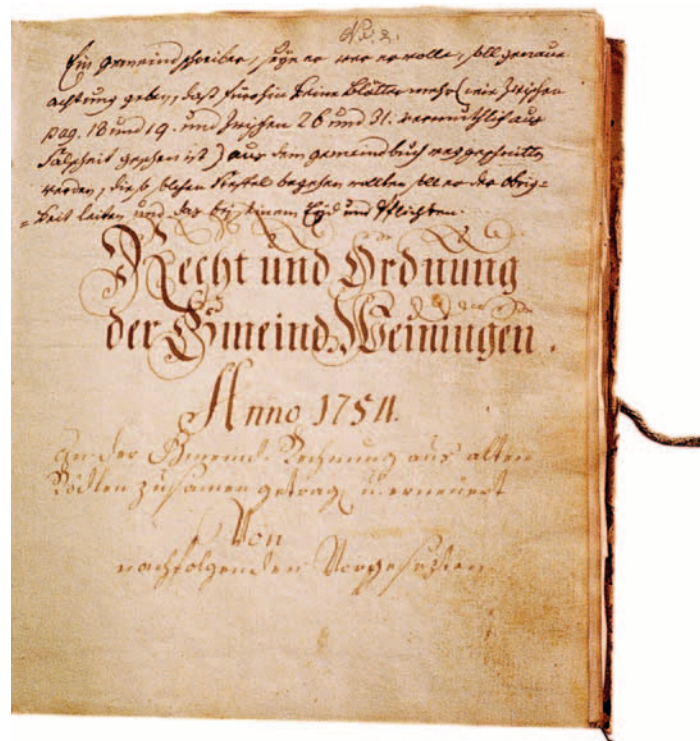 No. 2.
Ein gemeindschreiber, seÿe er wer er wolle, soll genaue
achtung geben, daß fürohin keine Blätter mehr (wie zwischen
pag. 18 und 19. und zwischen 26 und 31. vermuthlich aus
falschheit gesehen ist) aus dem gemeindbuch weggeschnitten
werden, die solchen Freffel begehen wollten soll er der Obrig=
=keit leiten und das beÿ seinem Eÿd und Pflichten.
Recht und Ordnung
der Gmeind Weiningen.
Anno 1754.
In der Gmeind Rechnung aus alten
Rödlen zusamen getragē u. erneuert
Von
nachfolgenden Vorgesezten